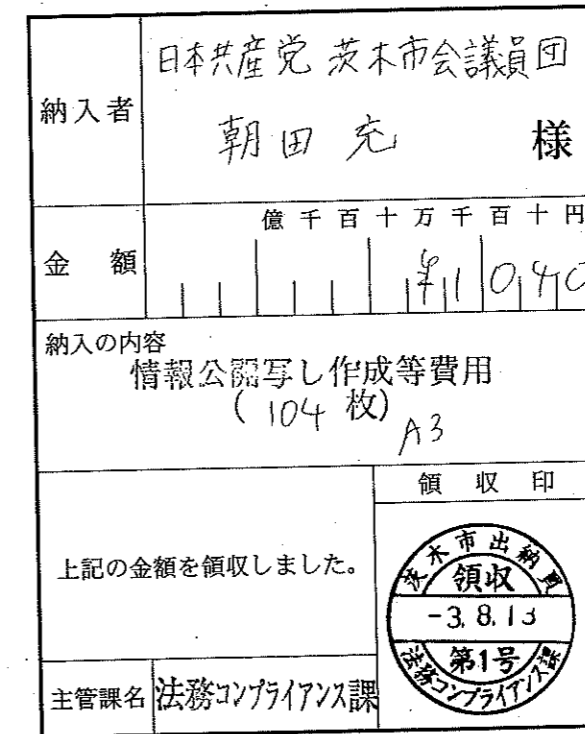 納入者
日本共産党 茨木市会議員団
朝田 充 様
金 額
億千百十万千百十円
¥1040
納入の内容
情報公開写し作成等費用
(104枚)
A3
上記の金額を領収しました。
領収印
茨木市出納員
領収
-3.8.13
第1号
法務コンプライアンス課
主管課名 法務コンプライアンス課